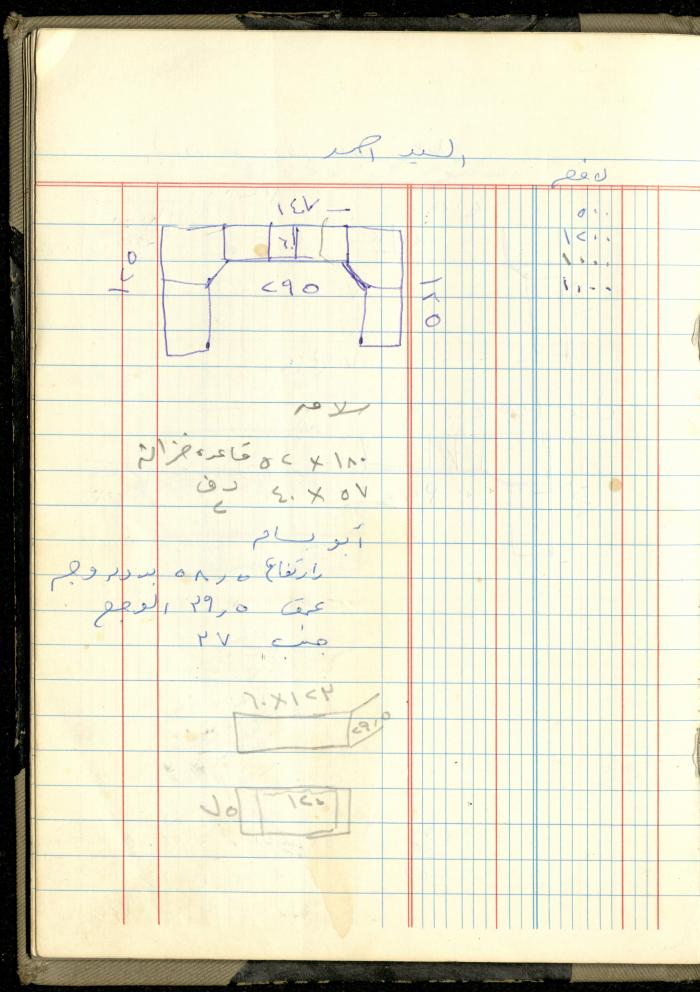 السيد احمد
٥٠٠
١٢٠٠
١٠٠٠
١٠٠٠
١٤٧
٦١
٢٩٥
١٢٥
١٢٥
سلامه
١٨٠ × ٥٢ قاعده خزانة
٥٧ × ٤٠ دف ٤
أبو بسام
ارتفاع ٥٨٫٥ بدون وجه
عمق ٢٩٫٥ الوجه
جنب ٢٧
٦٠×١٢٣
٢٩٫٥
١٢٠
٧٥